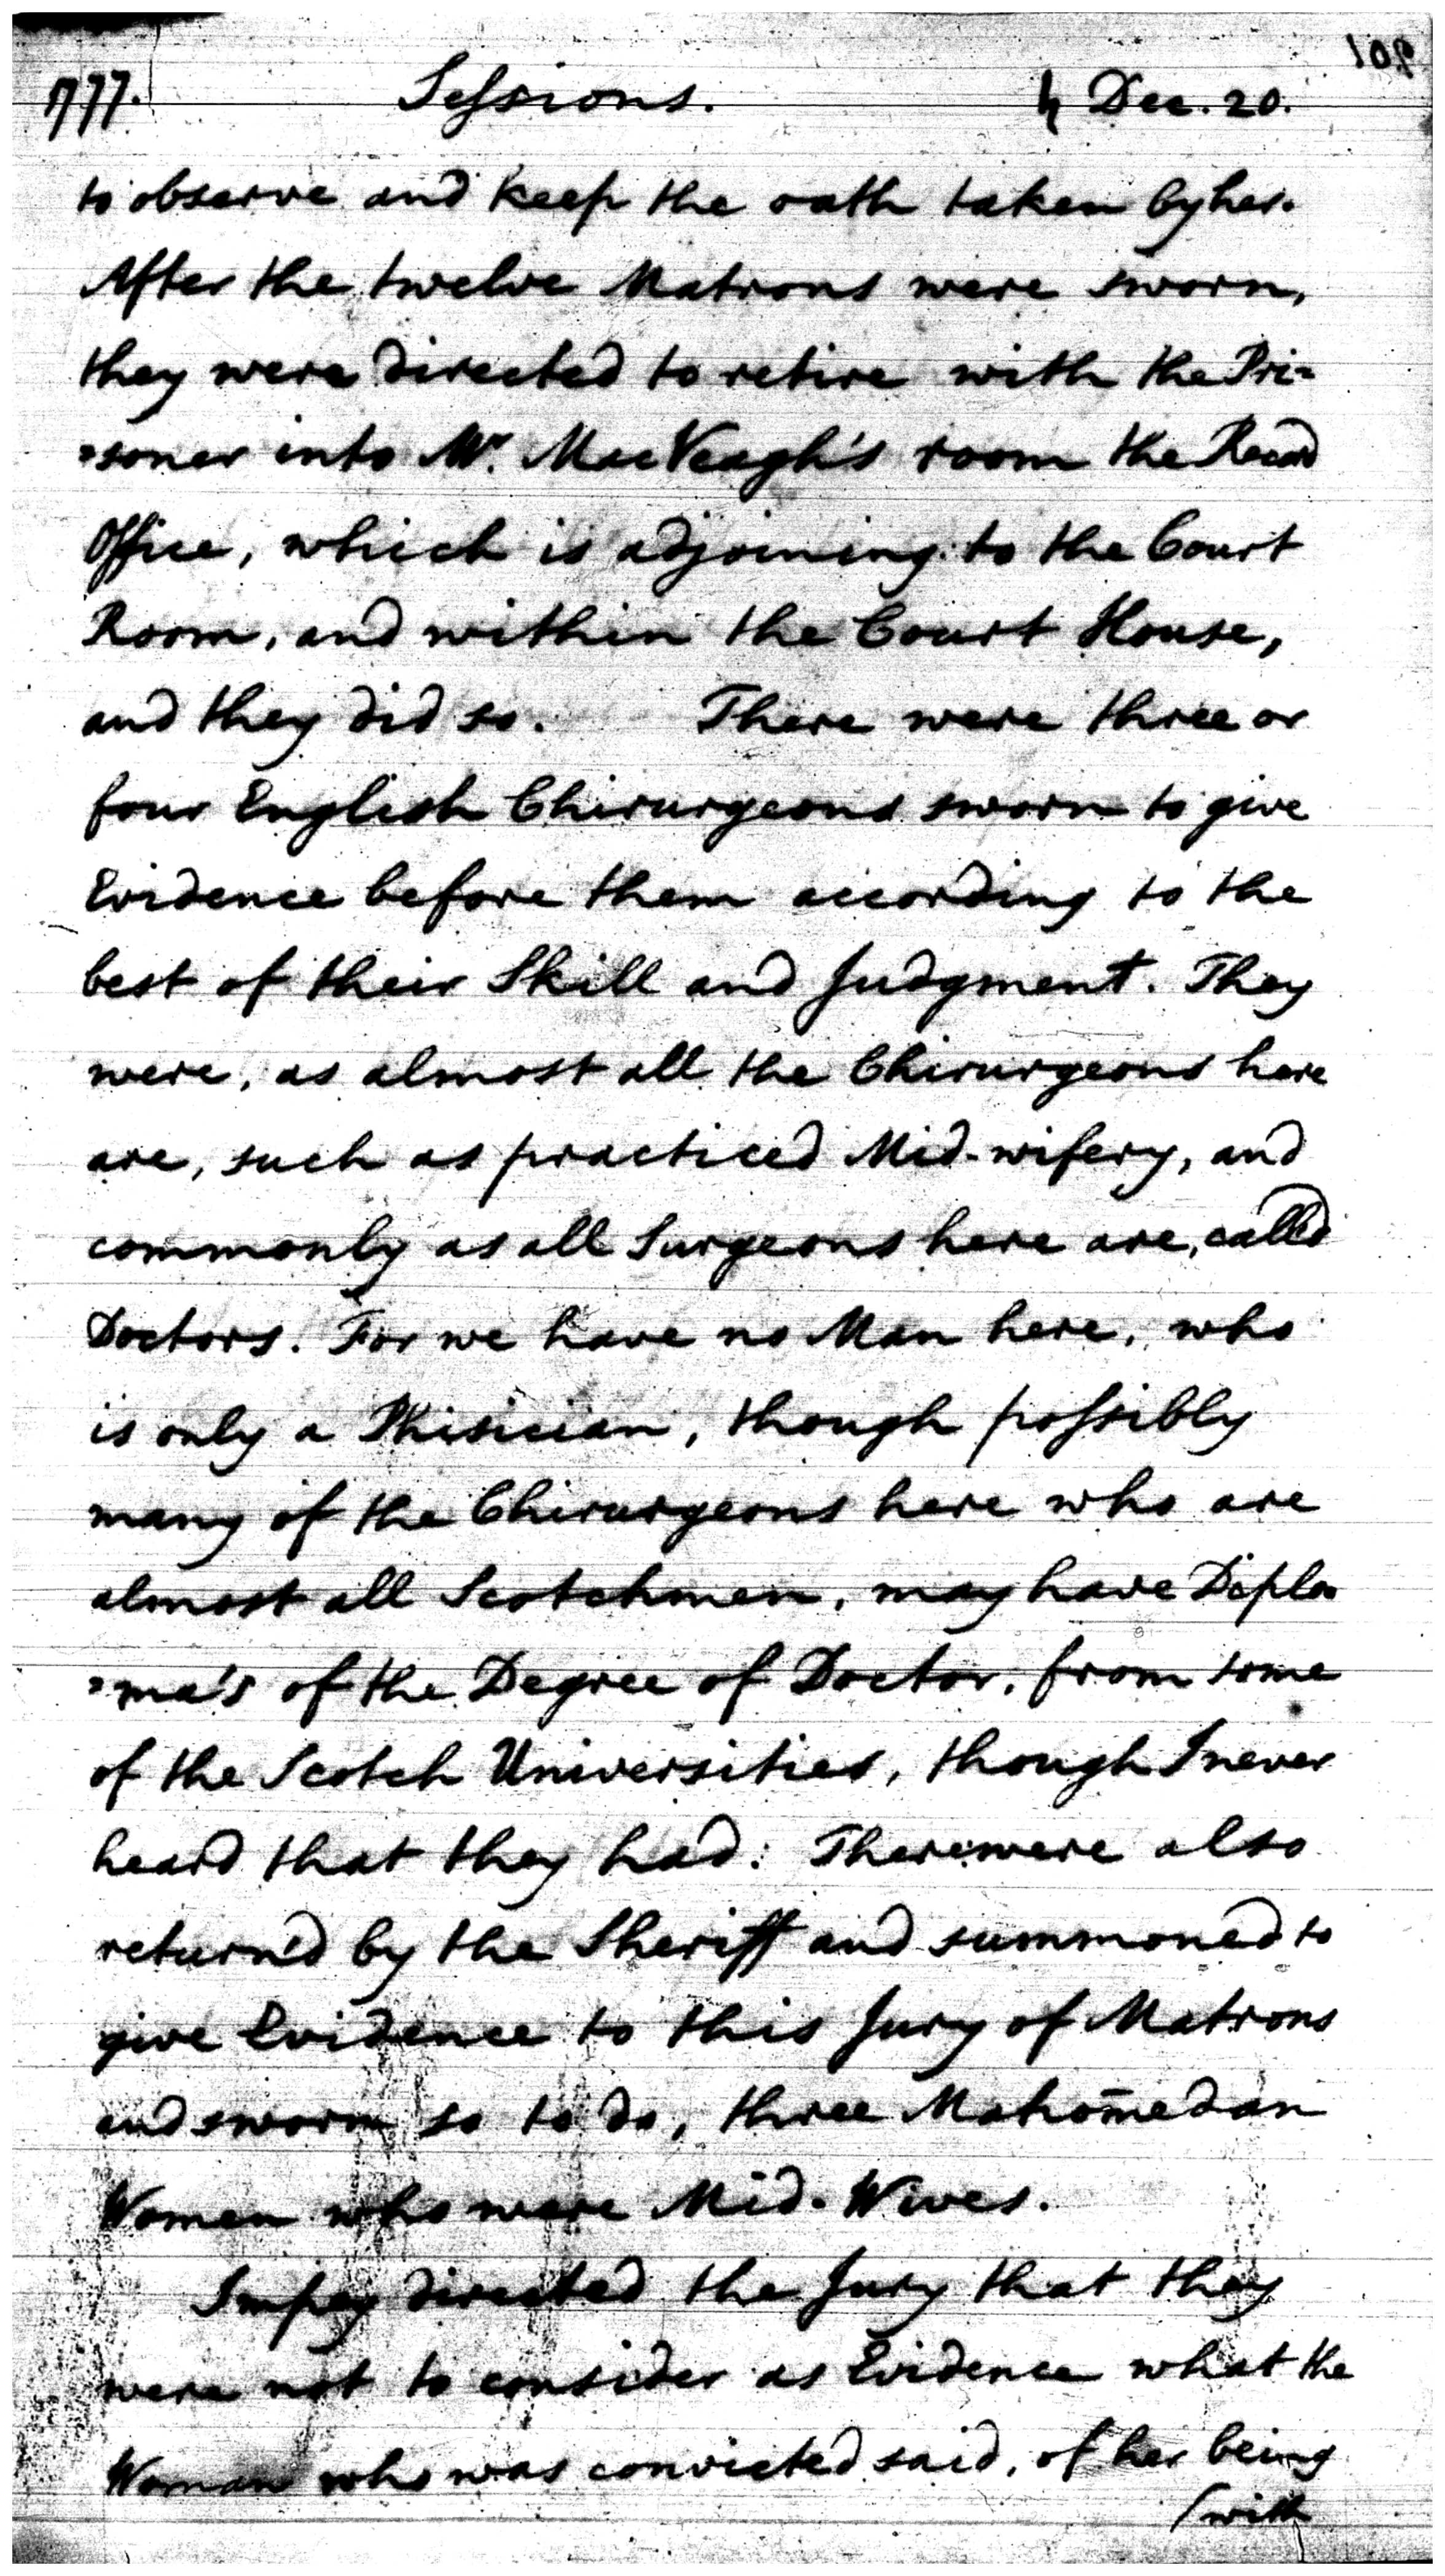 1777. Sessions. ♄ Dec. 20.
to observe and keep the oath taken by her.
After the twelve Matrons were sworn,
they were directed to retire with the Pri=
=soner into Mr. MacVeagh's room the Record
Office, which is adjoining to the Court
Room, and within the Court House,
and they did so. There were three or
four English Chirurgeons sworn to give
Evidence before them according to the
best of their Skill and Judgment. They
were, as almost all the Chirurgeons here
are, such as practiced Mid-wifery, and
commonly as all Surgeons here are, called
Doctors. For we have no Man here, who
is only a Phisician, though possibly
many of the Chirurgeons here who are
almost all Scotchmen, may have Diplo=
=ma's of the Degree of Doctor, from some
of the Scotch Universities, though I never
heard that they had: There were also
return'd by the Sheriff and summoned to
give Evidence to this Jury of Matrons
and sworn so to do, three Mahom̄edan
Women who were Mid-Wives.
Impey directed the Jury that they
were not to consider as Evidence what the
Woman who was convicted said, of her being
(with